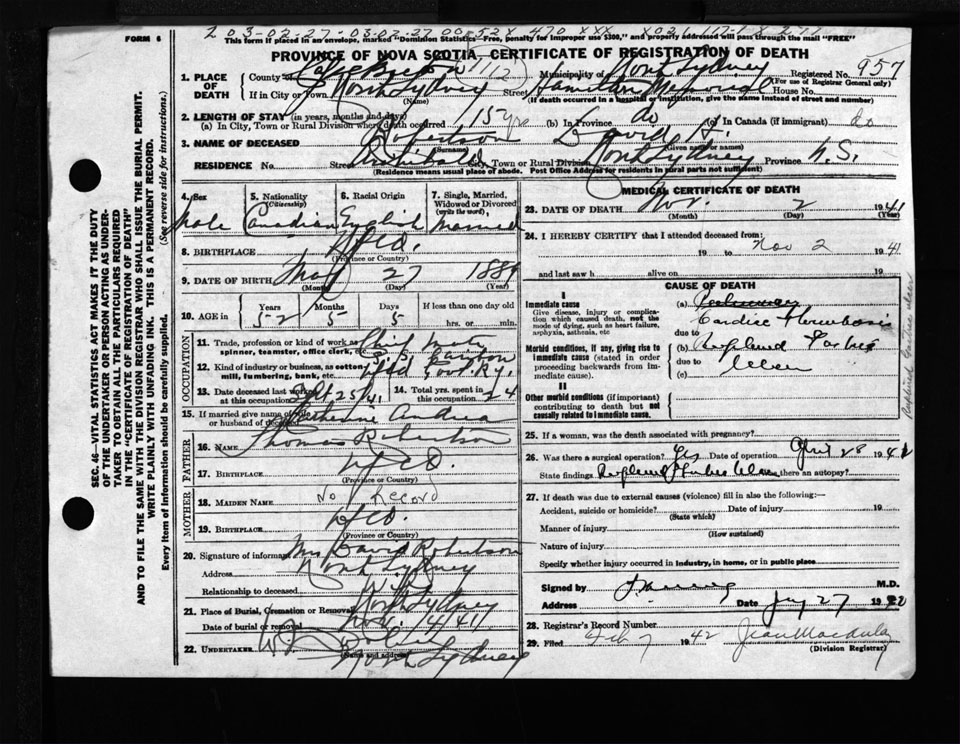 2 03-02-27-03-02-27 00-52X 470 XXX X02
FORM 6
This form if placed in an envelope, marked "Dominion Statistics—Free, penalty for improper use $300," and properly addressed will pass through the mail "FREE"
PROVINCE OF NOVA SCOTIA—CERTIFICATE OF REGISTRATION OF DEATH
Registered No. 957
(For use of Registrar General only)
1. PLACE OF DEATH
County of Cape Breton 112 Municipality of North Sydney
If in City or Town North Sydney Street Hamilton Memorial House No.
(Name) (If death occurred in a hospital or institution, give the name instead of street and number)
2. LENGTH OF STAY (in years, months and days)
(a) In City, Town or Rural Division where death occurred 15 yrs (b) In Province do (c) In Canada (if immigrant) do
3. NAME OF DECEASED Robertson David H.
(Surname) (Given name or names)
RESIDENCE No. Street Archibald City, Town or Rural Division North Sydney Province N.S.
(Residence means usual place of abode. Post Office Address for residents in rural parts not sufficient)
4. Sex Male
5. Nationality (Citizenship) Canadian
6. Racial Origin English
7. Single, Married, Widowed or Divorced (write the word) Married
8. BIRTHPLACE Nfld.
(Province or Country)
9. DATE OF BIRTH May 27 1889
(Month) (Day) (Year)
10. AGE Years 52 Months 5 Days 5 If less than one day old
hrs. or min.
OCCUPATION
11. Trade, profession or kind of work as spinner, teamster, office clerk, etc. Chief Mate
12. Kind of industry or business, as cotton mill, lumbering, bank, etc. S. S. Caribou
Nfld Govt. Ry.
13. Date deceased last worked at this occupation Sept 25/41
14. Total yrs. spent in this occupation 24
15. If married give name of wife or husband of deceased Katherine Andrea
FATHER
16. NAME Thomas Robertson
17. BIRTHPLACE Nfld.
(Province or Country)
MOTHER
18. MAIDEN NAME No Record
19. BIRTHPLACE Nfld.
(Province or Country)
20. Signature of informant Mrs David Robertson
Address North Sydney
Relationship to deceased Wife
21. Place of Burial, Cremation or Removal North Sydney
Date of burial or removal Nov. 14/41
22. UNDERTAKER
(Name and address) North Sydney
MEDICAL CERTIFICATE OF DEATH
23. DATE OF DEATH Nov. 2 1941
(Month) (Day) (Year)
24. I HEREBY CERTIFY that I attended deceased from:
19 to Nov 2 1941
and last saw h alive on 19
CAUSE OF DEATH
I
Immediate cause
Give disease, injury or complication which caused death, not the mode of dying, such as heart failure, asphyxia, asthenia, etc
(a)
Cardiac Thrombosis
due to
Morbid conditions, if any, giving rise to immediate cause (stated in order proceeding backwards from immediate cause).
(b)
due to
Ulcer
(c)
II
Other morbid conditions (if important) contributing to death but not causally related to immediate cause.
25. If a woman, was the death associated with pregnancy?
26. Was there a surgical operation? Yes Date of operation April 28 194
State findings Was there an autopsy?
27. If death was due to external causes (violence) fill in also the following:—
Accident, suicide or homicide? Date of injury 19
(State which)
Manner of injury
(How sustained)
Nature of injury
Specify whether injury occurred in industry, in home, or in public place
Signed by M.D.
Address Date Jany 27 19
28. Registrar's Record Number
29. Filed Feb 7 1942
(Division Registrar)
SEC. 46—VITAL STATISTICS ACT MAKES IT THE DUTY
OF THE UNDERTAKER OR PERSON ACTING AS UNDER-
TAKER TO OBTAIN ALL THE PARTICULARS REQUIRED
IN THE "CERTIFICATE OF REGISTRATION OF DEATH"
AND TO FILE THE SAME WITH THE DIVISION REGISTRAR WHO SHALL ISSUE THE BURIAL PERMIT.
WRITE PLAINLY WITH UNFADING INK. THIS IS A PERMANENT RECORD.
Every item of information should be carefully supplied. (See reverse side for instructions.)